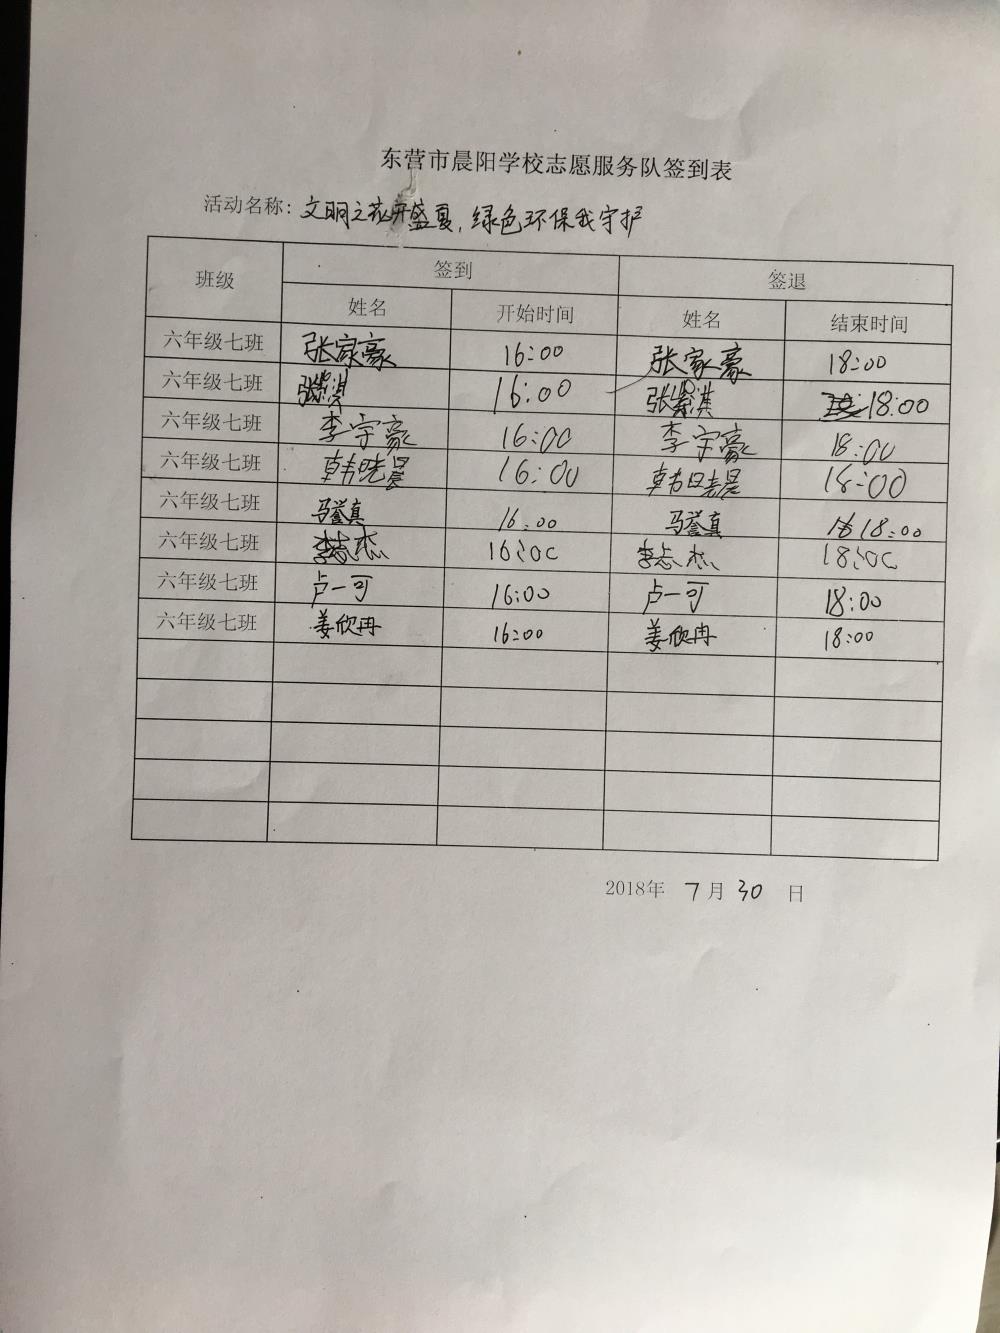 东营市晨阳学校志愿服务队签到表
活动名称：文明之花开盛夏，绿色环保我守护
班级 签到 签退
姓名 开始时间 姓名 结束时间
六年级七班 张家豪 16:00 张家豪 18:00
六年级七班 张紫淇 16:00 张紫淇 18:00
六年级七班 李宇豪 16:00 李宇豪 18:00
六年级七班 韩晓晨 16:00 韩晓晨 18:00
六年级七班 马誉真 16:00 马誉真 18:00
六年级七班 李志杰 16:00 李志杰 18:00
六年级七班 卢一可 16:00 卢一可 18:00
六年级七班 姜欣冉 16:00 姜欣冉 18:00
2018年 7月 30 日